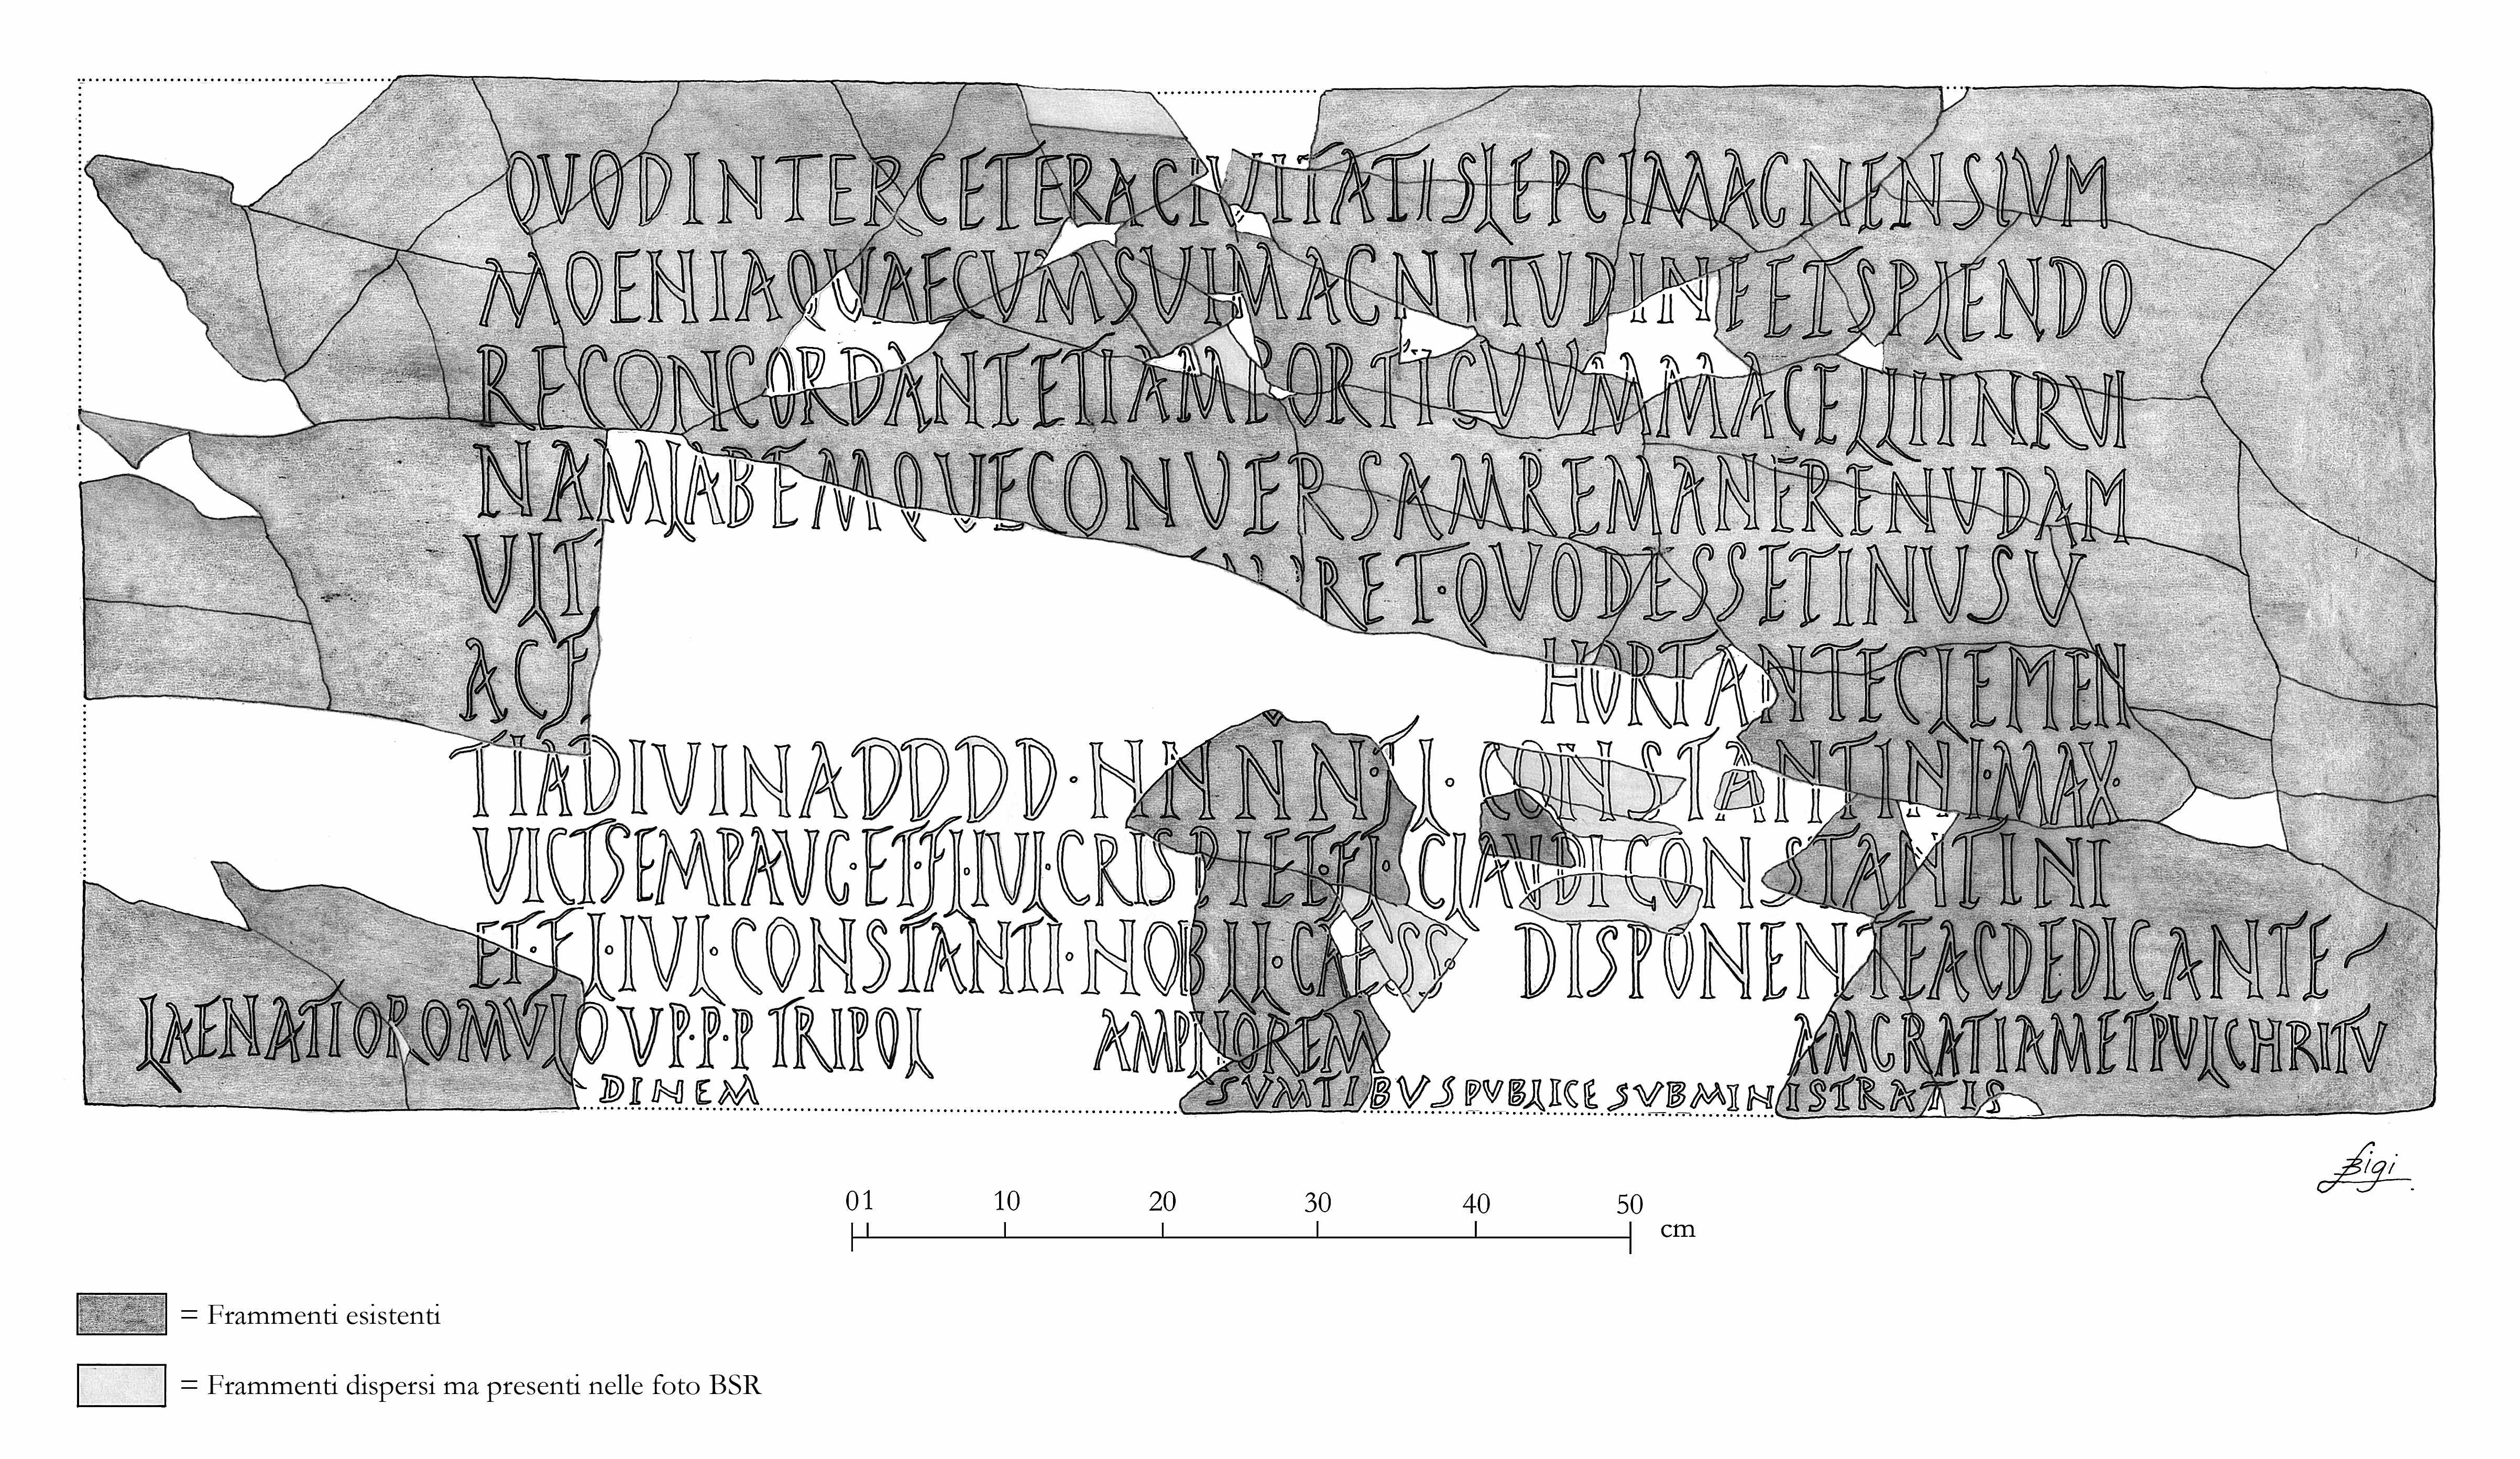 QVODINTERCETERACIVITATISLEPCIMAGNENSIVM
MOENIAQVAECVMSVIMAGNITUDINEETSPLENDO
RECONCORDANTETIAMPORTICVVMMACELLIINRVI
NAMLABEMQVECONVERSAMREMANERENVDAM
VLT RET·QVODESSETINVSV
ACF HORTANTECLEMEN
TIADIVINADDDD·NNNN·FL·CONSTANTINI·MAX·
VICTSEMPAVG·ET·FL·IVL·CRISPIET·FL·CLAVDICONSTANTINI
ET·FL·IVL·CONSTANTI·NOBIL·CAESS DISPONENTEACDEDICANTE
LAENATIOROMVLOVP·P·P TRIPOL AMPLIOREM AMGRATIAMETPVLCHRITV
DINEM SVMTIBVSPVBLICE SVBMINISTRATIS
Bigi
01 10 20 30 40 50 cm
= Frammenti esistenti
= Frammenti dispersi ma presenti nelle foto BSR